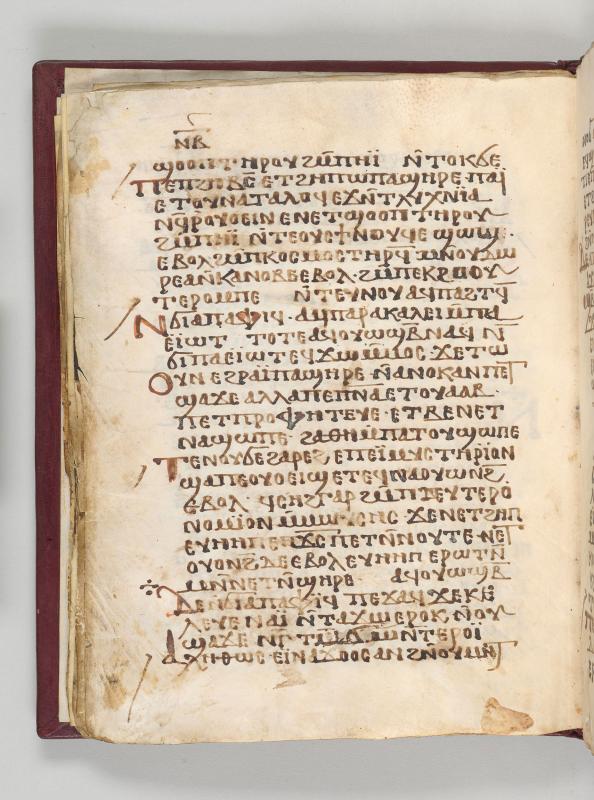 ⲛⲃ
ϣⲟⲟⲡ ⲧⲏⲣⲟⲩ ϩⲙ̄ⲡⲏⲓ̈ ⲛ̄ⲧⲟⲕ ⲇⲉ
ⲡⲉⲧϩⲏⲡ ⲱ ⲡⲁϣⲏⲣⲉ ⲡⲁⲓ̈
ⲉⲧⲟⲩⲛⲁⲧⲁⲗⲟϥ ⲉϫⲛ̄ⲧⲗⲩⲭⲛⲓⲁ
ⲛϥ̄ⲣⲟⲩⲟⲉⲓⲛ ⲉⲛⲉⲧϣⲟⲟⲡ ⲧⲏⲣⲟⲩ
ϩⲙ̄ⲡⲏⲓ̈ ⲛ̄ⲧⲉⲟⲩⲥϯⲛⲟⲩϥⲉ ϣⲱϣⲉ
ⲉⲃⲟⲗ ϩⲙ̄ⲡⲕⲟⲥⲙⲟⲥ ⲧⲏⲣϥ̄
ⲉⲃⲟⲗ·
ⲧⲉⲣⲟⲙⲡⲉ ⲛ̄ⲧⲉⲩⲛⲟⲩ ⲁϥⲡⲁϩⲧϥ̄
ⲛ̄ϭⲓⲁⲡⲁ ⲁϥⲡⲁⲣⲁⲕⲁⲗⲉⲓ ⲙ̄ⲡⲁ
ⲉⲓ̈ⲱⲧ ⲧⲟⲧⲉ ⲁϥⲟⲩⲱϣⲃ ⲛⲁϥ ⲛ̄
ϭⲓⲡⲁⲉⲓⲱⲧ ⲉϥϫⲱ ⲙ̄ⲙⲟⲥ· ϫⲉ ⲧⲱ
ⲟⲩⲛ ⲉϩⲣⲁⲓ̈ ⲡⲁϣⲏⲣⲉ ⲛ̄ⲁⲛⲟⲕ ⲁⲛ ⲡⲉⲧ
ϣⲁϫⲉ ⲁⲗⲗⲁ ⲡⲉⲡⲛ̅ⲁ̅ ⲉⲧⲟⲩⲁⲁⲃ·
ⲡⲉⲧⲡⲣⲟⲫⲏⲧⲉⲩⲉ· ⲉⲧⲃⲉ ⲛⲉⲧ
ⲛⲁϣⲱⲡⲉ· ϩⲁⲑⲏ ⲙ̄ⲡⲁⲧⲟⲩϣⲱⲡⲉ
ⲧⲉⲛⲟⲩ ϭⲉ ϩⲁⲣⲉϩ ⲉⲡⲉⲓ̈ⲙⲩⲥⲧⲏⲣⲓ̈ⲟⲛ
ϣⲁⲡⲉⲟⲩⲟⲉⲓϣ ⲉⲧⲉϥⲛⲁⲟⲩⲱⲛϩ
ⲉⲃⲟⲗ· ϥⲥⲏϩ ⲅⲁⲣ ϩⲙ̄ⲡⲇⲉⲩⲧⲉⲣⲟ
ⲛⲟⲙⲓⲟⲛ ⲙ̄ⲙⲱⲩⲥⲏⲥ· ϫⲉ ⲛⲉⲧϩⲏⲡ
ⲉⲩⲏⲡ ⲡⲉⲛⲛⲟⲩⲧⲉ· ⲛⲉⲧ
ⲟⲩⲟⲛϩ ⲇⲉ ⲉⲃⲟⲗ ⲉⲩⲏⲡ ⲉⲣⲱⲧⲛ̄
ⲙⲛ̄ⲛⲉⲧⲛ̄ϣⲏⲣⲉ· ⲁϥⲟⲩⲱϣⲃ
ⲇⲉ ⲛ̄ϭⲓⲁⲡⲁ ⲡⲉϫⲁϥ ϫⲉ ⲕⲉ
ⲗⲉⲩⲉ ⲛⲁⲓ̈ ⲛ̄ⲧⲁϫⲱ ⲉⲣⲟⲕ ⲛ̄ⲟⲩ
ϣⲁϫⲉ ⲛⲅ̄ⲧⲙ̄ ⲉⲣⲟⲓ̈
ⲁⲗⲏⲑⲱⲥ· ⲉⲓ̈ⲛⲁϫⲟⲟⲥ ⲁⲛ ϩⲛ̄ⲟⲩⲙⲛ̄ⲧ